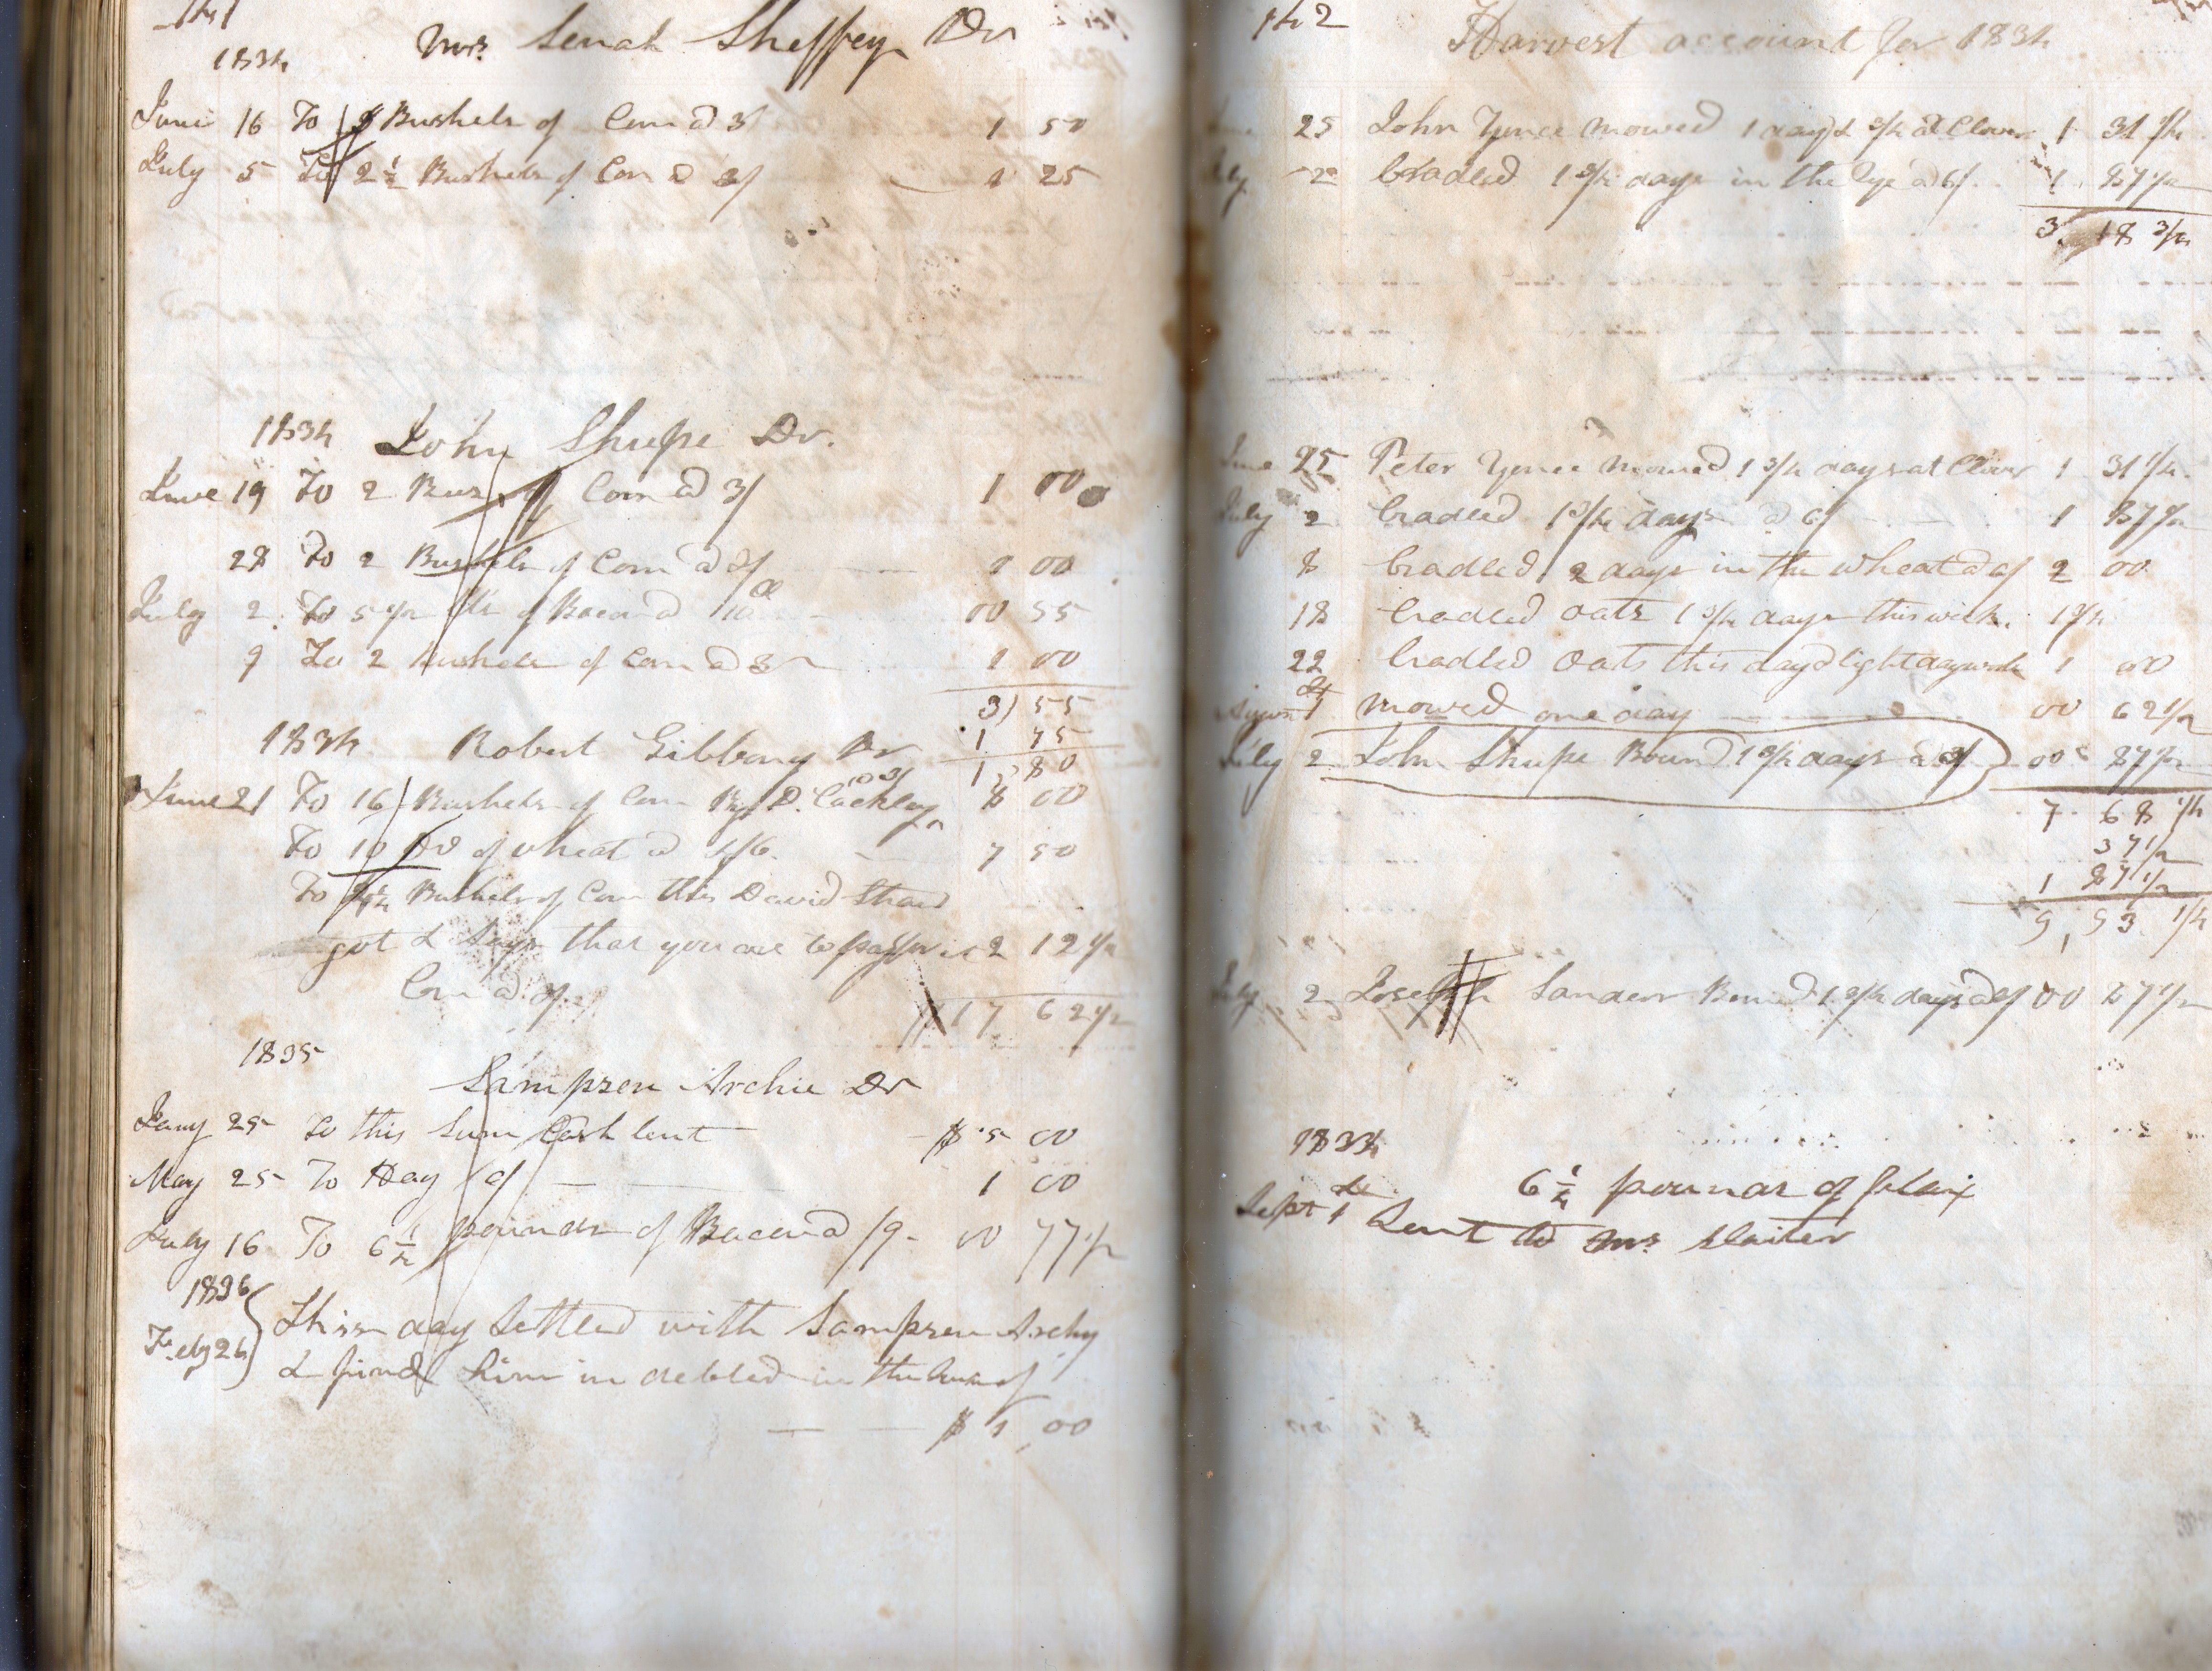 141
Mrs. Senah Sheffey Dr
1834
June 16 To 3 Bushels of Corn @ 3/ 1 50
July 5 To 2 1/2 Bushels of Corn @ 3/ 1 25
1834 John Shupe Dr.
June 19 To 2 Bus of Corn @ 3/ 1 00
28 To 2 Bushels of Corn @ 3/ 1 00
July 2 To 5 1/2 lbs of Bacon @ 10 00 55
9 To 2 bushels of Corn @ 3 1 00
3) 55
1 75
1 80
1834 Robert Gibbony Dr
June 21 To 16 Bushels of Corn By D. Cackley @ 3/ 8 00
To 10 Do of wheat @ 4/6 7 50
To 4 1/4 Bushels of Corn this David
got & says that you are to pay for it 2 12 1/2
Corn @ 3/
$17 62 1/2
1835
Sampsen Archie Dr
Jany 25 To this Sum Cash lent $ 5 00
May 25 To Hay 6/ 1 00
July 16 To 6 1/2 pounds of Bacon @ /9 00 77 1/2
1836
Feby 26 } This day Settled with Sampsen Archy
& find him in debted in the Sum of
$ 1,00
142
Harvest account for 1834
June 25 John Yonce mowed 1 day & 3/4 at Clover 1 31 1/4
July 2 Cradled 1 3/4 days in the Rye @ 6/ 1 87 1/2
3. 18 3/4
June 25 Peter Yonce mowed 1 3/4 days at Clover 1 31 1/4
July 2 Cradled 1 3/4 days @ 6/ 1 87 1/2
8 Cradled 2 days in the wheat @ 6/ 2 00
18 Cradled oats 1 3/4 days this week. 1 3/4
22 Cradled oats this day light days work 1 00
August 1st mowed one day 00 62 1/2
July 2 John Shupe Bound 1 3/4 days @ 3/ 00 87 1/2
7. 68 1/4
37 1/2
1 87 1/2
9,93 1/4
July 2 Joseph Sanders Bound 1 3/4 days @ 3/ 00 87 1/2
1834
6 1/2 pounds of flax
Sept 1st Sent to Mrs Slaiter